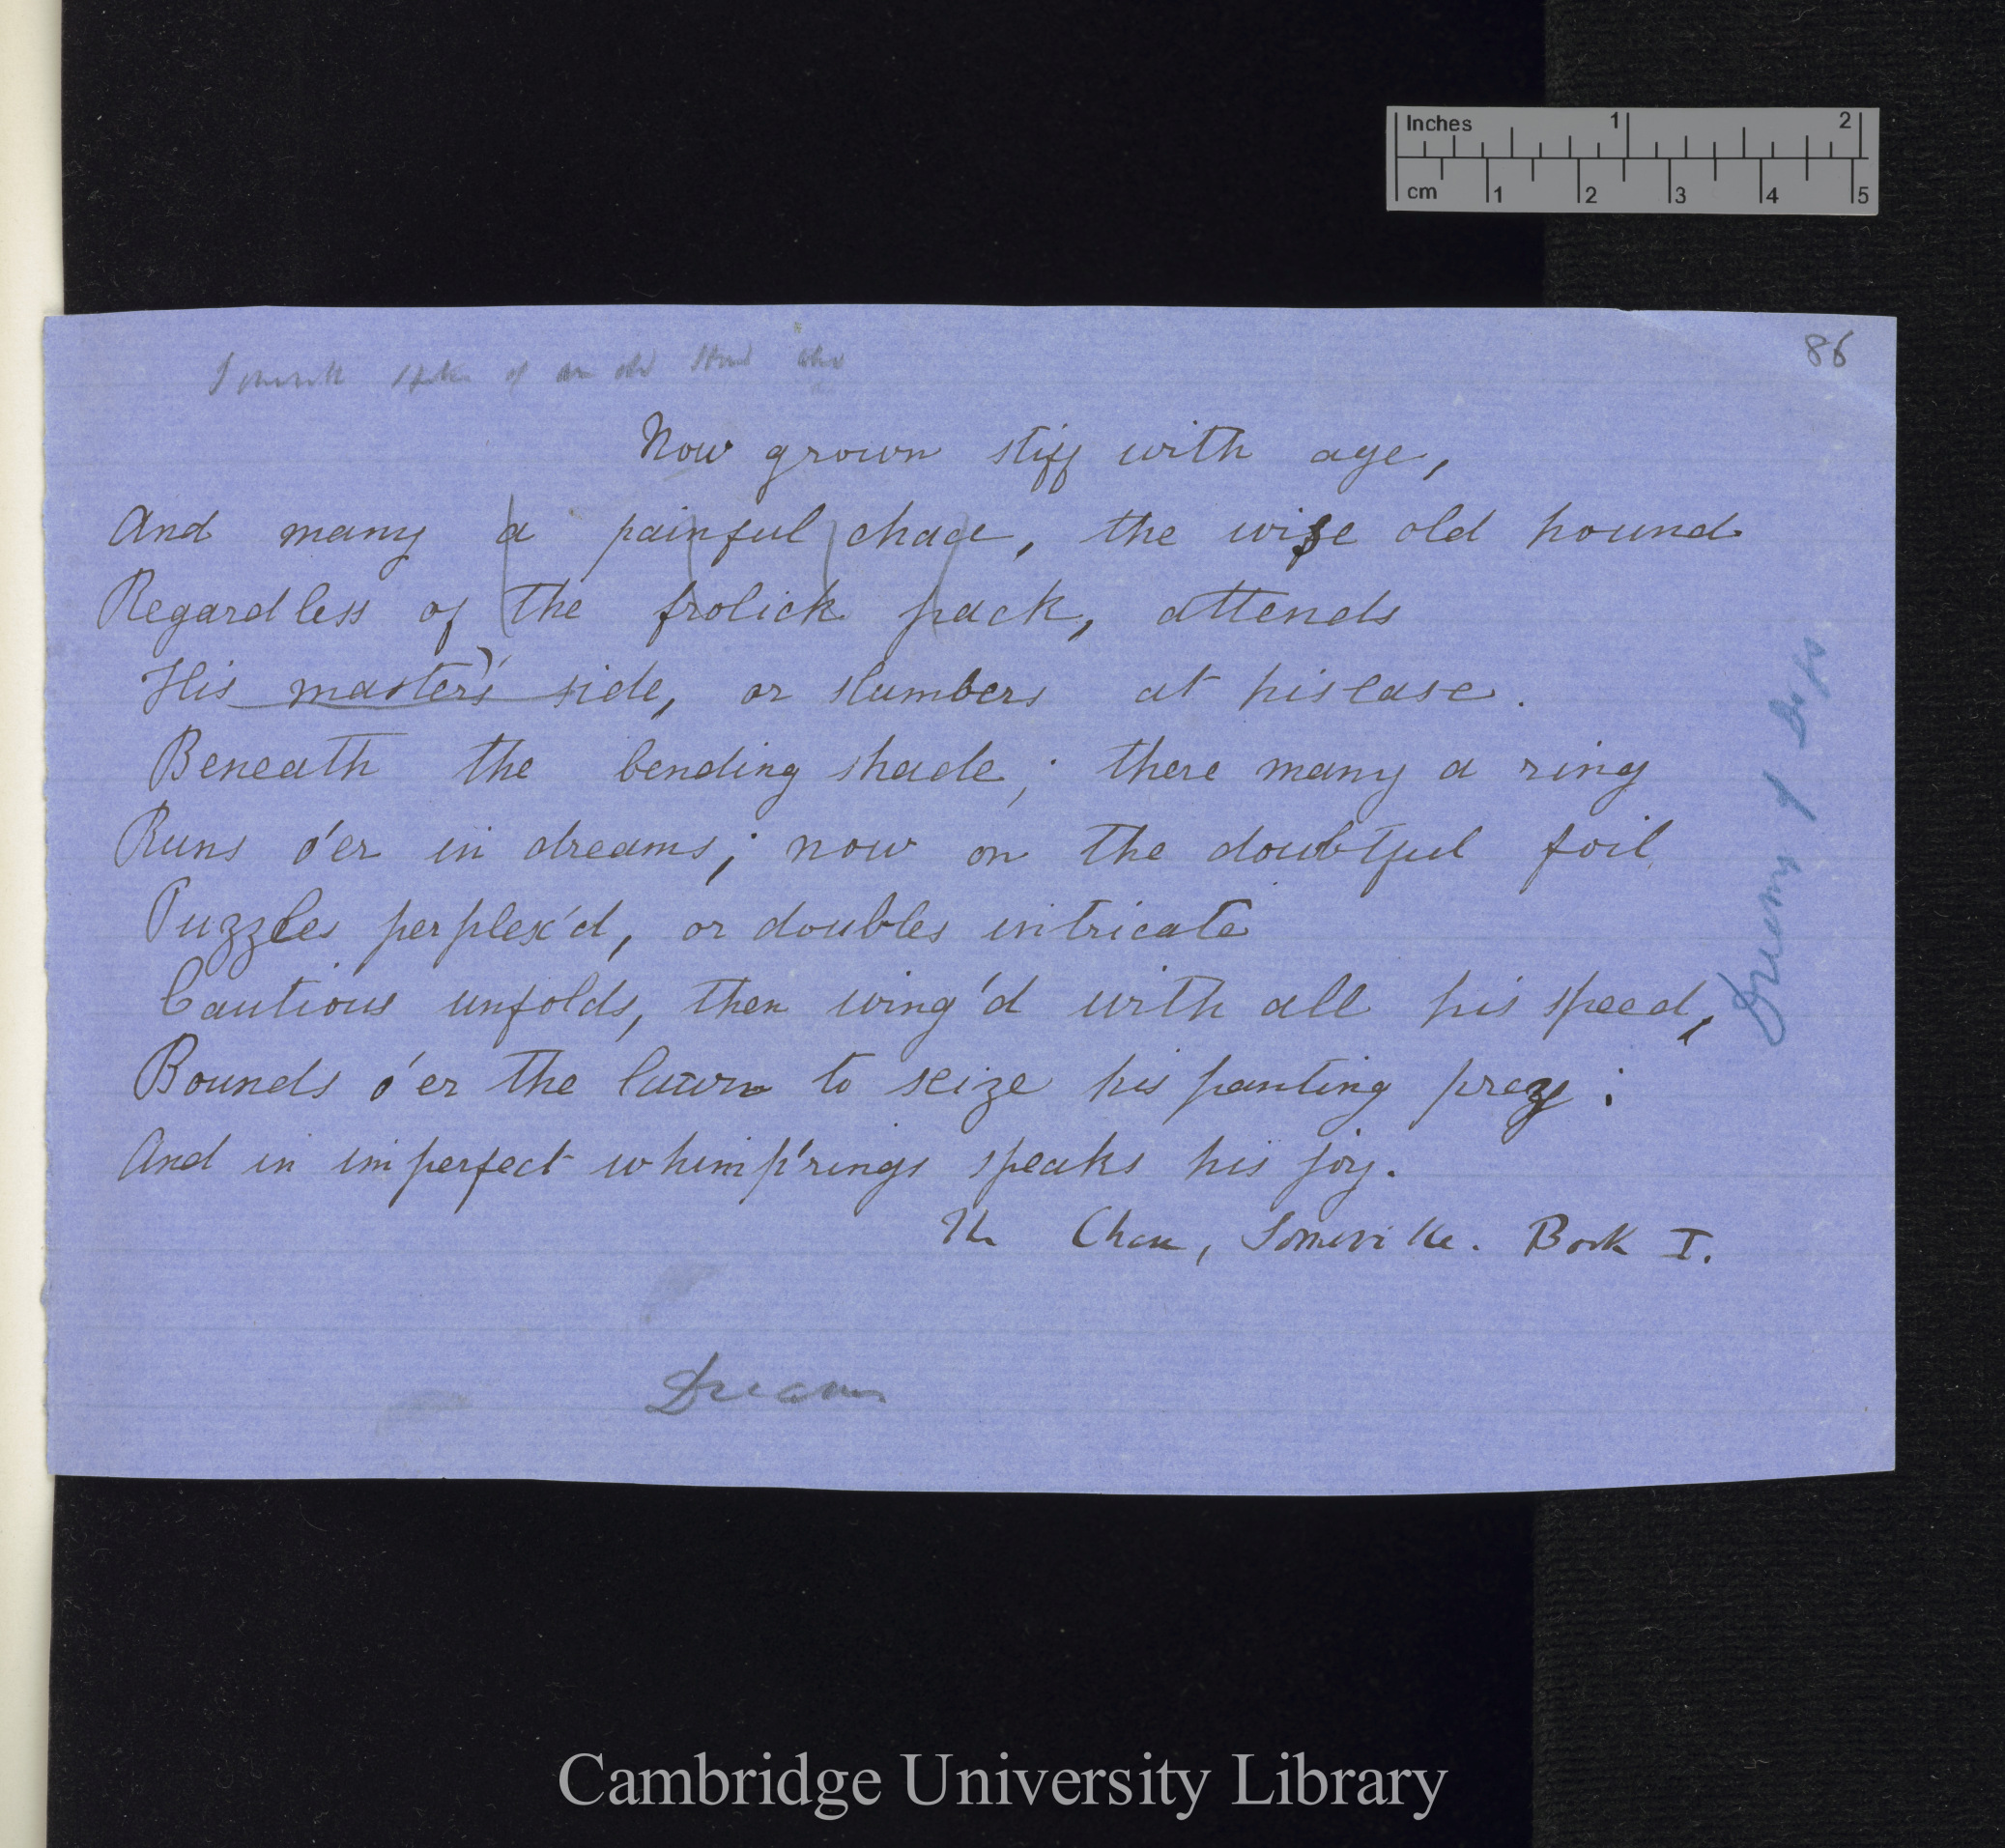 Inches 1 2
cm 1 2 3 4 5
86
Somerville spoke of an old Hound who
Now grown stiff with age,
And many a painful chace, the wise old hound
Regardless of the frolick pack, attends
His master's side, or slumbers at his ease.
Beneath the bending shade; there many a ring
Runs o'er in dreams; now on the doubtful foil
Puzzles perplex'd, or doubles intricate
Cautious unfolds, then wing'd with all his speed,
Bounds o'er the lawn to seize his panting prey:
And in imperfect whimp'rings speaks his joy.
The Chace, Somerville. Book I.
Dreams
Dreams of Dogs
Cambridge University Library